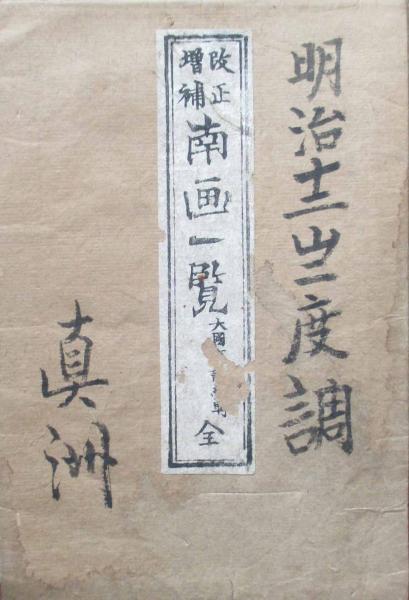 明治十二度調
改正
増補
南画一覧
大國
全
眞洲